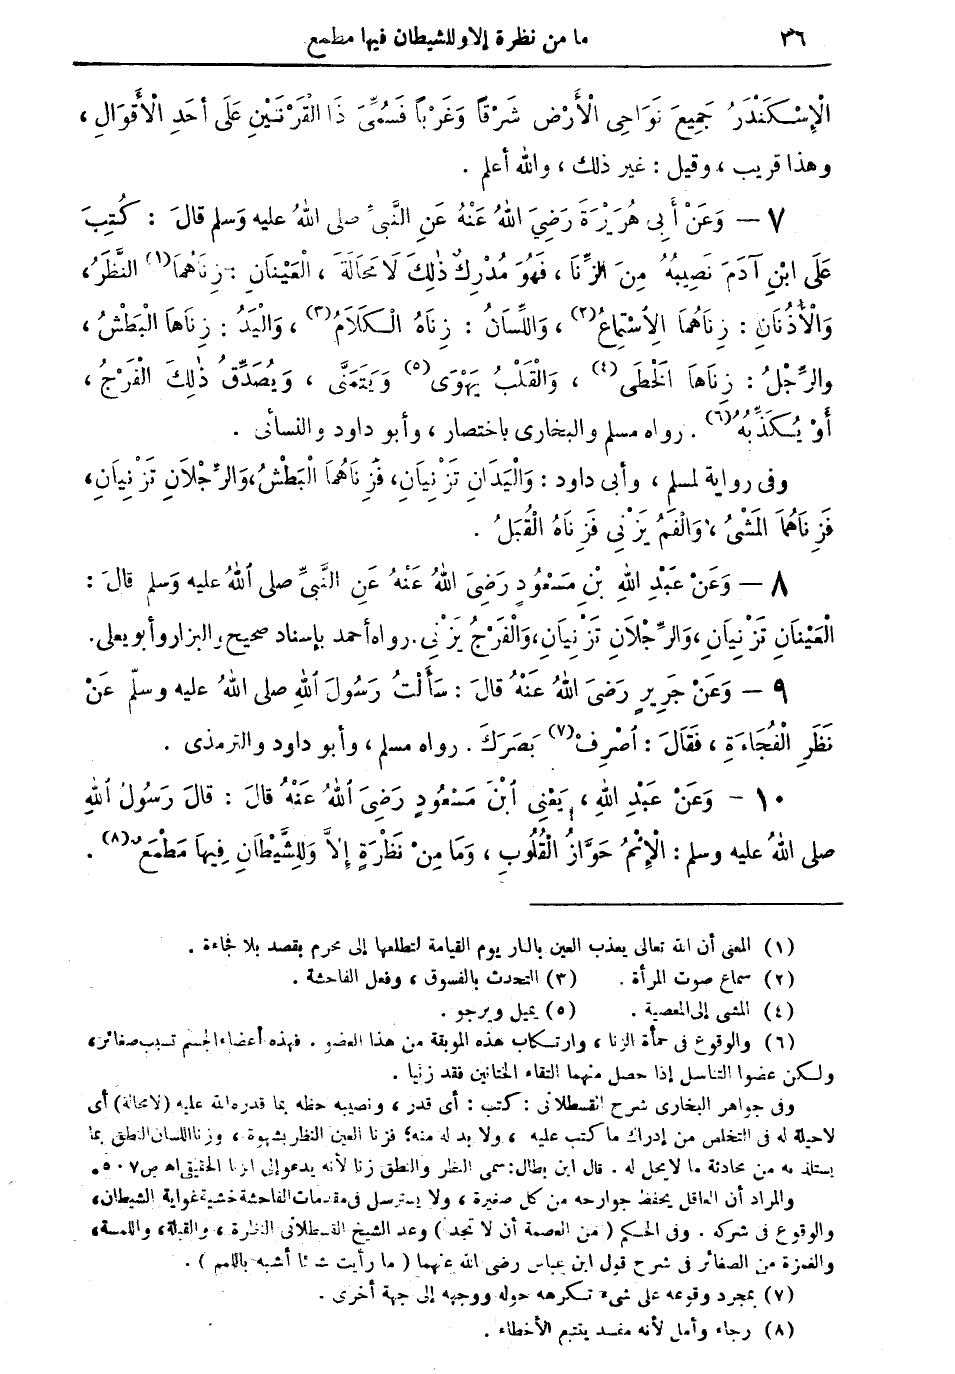 ٣٦ ما من نظرة إلا وللشيطان فيها مطمع
الْإِسْكَنْدَرُ جَمِيعَ نَوَاحِى الْأَرْضِ شَرْقًا وَغَرْبًا فَسُمِّىَ ذَا الْقَرْنَيْنِ عَلَى أَحَدِ الْأَقْوَالِ ،
وهذا قريب ، وقيل : غير ذلك ، والله أعلم .
٧ – وَعَنْ أَبِى هُرَيْرَةَ رَضِيَ اللهُ عَنْهُ عَنِ النَّبِىِّ صلى اللهُ عليه وَسلم قَالَ : كُتِبَ
عَلَى ابْنِ آدَمَ نَصِيبُهُ مِنَ الزِّنَا ، فَهُوَ مُدْرِكٌ ذٰلِكَ لَا مَحَالَةَ ، الْعَيْنَانِ : زِنَاهُمَا(١) النَّظَرُ ،
وَالْأُذُنَانِ : زِنَاهُمَا الِاسْتِمَاعُ(٢) ، وَاللِّسَانُ : زِنَاهُ الْكَلَامُ(٣) ، وَالْيَدُ : زِنَاهَا الْبَطْشُ ،
والرِّجْلُ : زِنَاهَا الْخُطَى(٤) ، وَالْقَلْبُ يَهْوَى(٥) وَيَتَمَنَّى ، وَيُصَدِّقُ ذٰلِكَ الْفَرْجُ ،
أَوْ يُكَذِّبُهُ(٦) . رواه مسلم والبخارى باختصار ، وأبو داود والنسائى .
وفى رواية لمسلم ، وأبى داود : وَالْيَدَانِ تَزْنِيَانِ، فَزِنَاهُمَا الْبَطْشُ، وَالرِّجْلَانِ تَزْنِيَانِ،
فَزِنَاهُمَا الْمَشْىُ ، وَالْفَمُ يَزْنِى فَزِنَاهُ الْقُبَلُ .
٨ – وَعَنْ عَبْدِ اللهِ بْنِ مَسْعُودٍ رَضِىَ اللهُ عَنْهُ عَنِ النَّبِىِّ صلى اللهُ عليه وَسلم قَالَ :
الْعَيْنَانِ تَزْنِيَانِ، وَالرِّجْلَانِ تَزْنِيَانِ، وَالْفَرْجُ يَزْنِى. رواه أحمد بإسناد صحيح والبزار وأبو يعلى.
٩ – وَعَنْ جَرِيرٍ رَضِىَ اللهُ عَنْهُ قَالَ : سَأَلْتُ رَسُولَ اللهِ صلى اللهُ عليه وسلّم عَنْ
نَظَرِ الْفُجَاءَةِ ، فَقَالَ : اصْرِفْ(٧) بَصَرَكَ . رواه مسلم ، وأبو داود والترمذى .
١٠ – وَعَنْ عَبْدِ اللهِ ، يَعْنِى ابْنَ مَسْعُودٍ رَضِىَ اللهُ عَنْهُ قَالَ : قَالَ رَسُولُ اللهِ
صلى اللهُ عليه وسلم : الْإِثْمُ حَوَّازُ الْقُلُوبِ ، وَمَا مِنْ نَظْرَةٍ إِلَّا وَلِلشَّيْطَانِ فِيهَا مَطْمَعٌ(٨) .
(١) المعنى أن الله تعالى يعذب العين بالنار يوم القيامة لتطلعها إلى محرم بقصد بلا فجاءة .
(٢) سماع صوت المرأة . (٣) التحدث بالفسوق ، وفعل الفاحشة .
(٤) المشى إلى المعصية . (٥) يميل ويرجو .
(٦) والوقوع فى حمأة الزنا ، وارتكاب هذه الموبقة من هذا العضو . فهذه أعضاء الجسم تسبب صغائر،
ولكن عضوا التناسل إذا حصل منهما التقاء الختانين فقد زنيا .
وفى جواهر البخارى شرح القسطلانى : كتب : أى قدر ، ونصيبه حظه بما قدره الله عليه (لا محالة) أى
لا حيلة له فى التخلص من إدراك ما كتب عليه ، ولا بد له منه؛ فزنا العين النظر بشهوة ، وزنا اللسان النطق بما
يستلذ به من محادثة ما لا يحل له . قال ابن بطال: سمى النظر والنطق زنا لأنه يدعو إلى الزنا الحقيقى اهـ ص ٥٠٧.
والمراد أن العاقل يحفظ جوارحه من كل صغيرة ، ولا يسترسل فى مقدمات الفاحشة خشية غواية الشيطان،
والوقوع فى شركه . وفى الحكم ( من العصمة أن لا تجد ) وعد الشيخ القسطلانى النظرة ، والقبلة، واللمسة،
والغمزة من الصغائر فى شرح قول ابن عباس رضى الله عنهما ( ما رأيت شيئا أشبه باللمم ) .
(٧) بمجرد وقوعه على شىء تكرهه حوله ووجهه إلى جهة أخرى .
(٨) رجاء وأمل لأنه مفسد يتتبع الأخطاء .